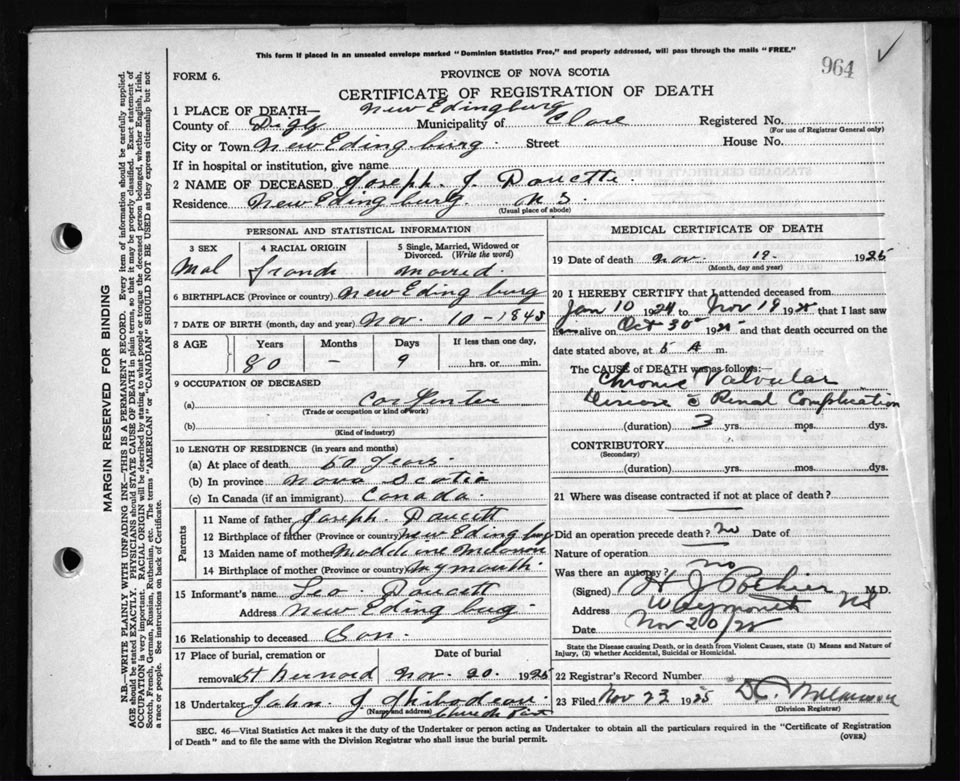 This form if placed in an unsealed envelope marked "Dominion Statistics Free," and properly addressed, will pass through the mails "FREE."
964
FORM 6.
PROVINCE OF NOVA SCOTIA
CERTIFICATE OF REGISTRATION OF DEATH
1 PLACE OF DEATH— New Edingburg
County of Digby Municipality of Clare Registered No.
(For use of Registrar General only)
City or Town New Edingburg. Street House No.
If in hospital or institution, give name
2 NAME OF DECEASED Joseph. J. Doucette.
Residence New Edingburg. N S.
(Usual place of abode)
PERSONAL AND STATISTICAL INFORMATION
3 SEX 4 RACIAL ORIGIN 5 Single, Married, Widowed or Divorced. (Write the word)
Mal
6 BIRTHPLACE (Province or country) New Edingburg
7 DATE OF BIRTH (month, day and year) Nov. 10-1843
8 AGE Years Months Days If less than one day,
80 - 9 hrs. or min.
9 OCCUPATION OF DECEASED
(a)
(Trade or occupation or kind of work)
(b)
(Kind of industry)
10 LENGTH OF RESIDENCE (in years and months)
(a) At place of death
(b) In province Nova Scotia
(c) In Canada (if an immigrant) Canada.
Parents
11 Name of father Joseph. Doucett
12 Birthplace of father (Province or country) New Edingburg
13 Maiden name of mother
14 Birthplace of mother (Province or country)
15 Informant's name Leo. Doucett
Address New Edingburg.
16 Relationship to deceased Son.
17 Place of burial, cremation or removal Date of burial
St Bernard Nov. 20. 1925
18 Undertaker John. J Thibodeau.
(Name and address) Church Point
MEDICAL CERTIFICATE OF DEATH
19 Date of death Nov. 19. 1925
(Month, day and year)
20 I HEREBY CERTIFY that I attended deceased from
Jan 10 1924 to Nov 19 192 that I last saw
h alive on Oct 30 192 and that death occurred on the
date stated above, at 5 A m.
The CAUSE of DEATH was as follows:—
Chronic Valvular
Disease c Renal Complication
(duration) 3 yrs. mos. dys.
CONTRIBUTORY
(Secondary)
(duration) yrs. mos. dys.
21 Where was disease contracted if not at place of death?
Did an operation precede death? No Date of
Nature of operation
Was there an autopsy? No
(Signed) M.D.
Address Weymouth NS
Date Nov 20/25
State the Disease causing Death, or in death from Violent Causes, state (1) Means and Nature of Injury, (2) whether Accidental, Suicidal or Homicidal.
22 Registrar's Record Number
23 Filed Nov 23 1925
(Division Registrar)
SEC. 46—Vital Statistics Act makes it the duty of the Undertaker or person acting as Undertaker to obtain all the particulars required in the "Certificate of Registration
of Death" and to file the same with the Division Registrar who shall issue the burial permit. (OVER)
MARGIN RESERVED FOR BINDING
N.B.—WRITE PLAINLY WITH UNFADING INK—THIS IS A PERMANENT RECORD. Every item of information should be carefully supplied.
AGE should be stated EXACTLY. PHYSICIANS should STATE CAUSE OF DEATH in plain terms, so that it may be properly classified. Exact statement of
OCCUPATION is very important. RACIAL ORIGIN will be described by stating to what people or tongue the deceased person belonged, whether English, Irish,
Scotch, French, German, Russian, Ruthenian, etc. The terms "AMERICAN" or "CANADIAN" SHOULD NOT BE USED as they express citizenship but not
a race or people. See instructions on back of Certificate.